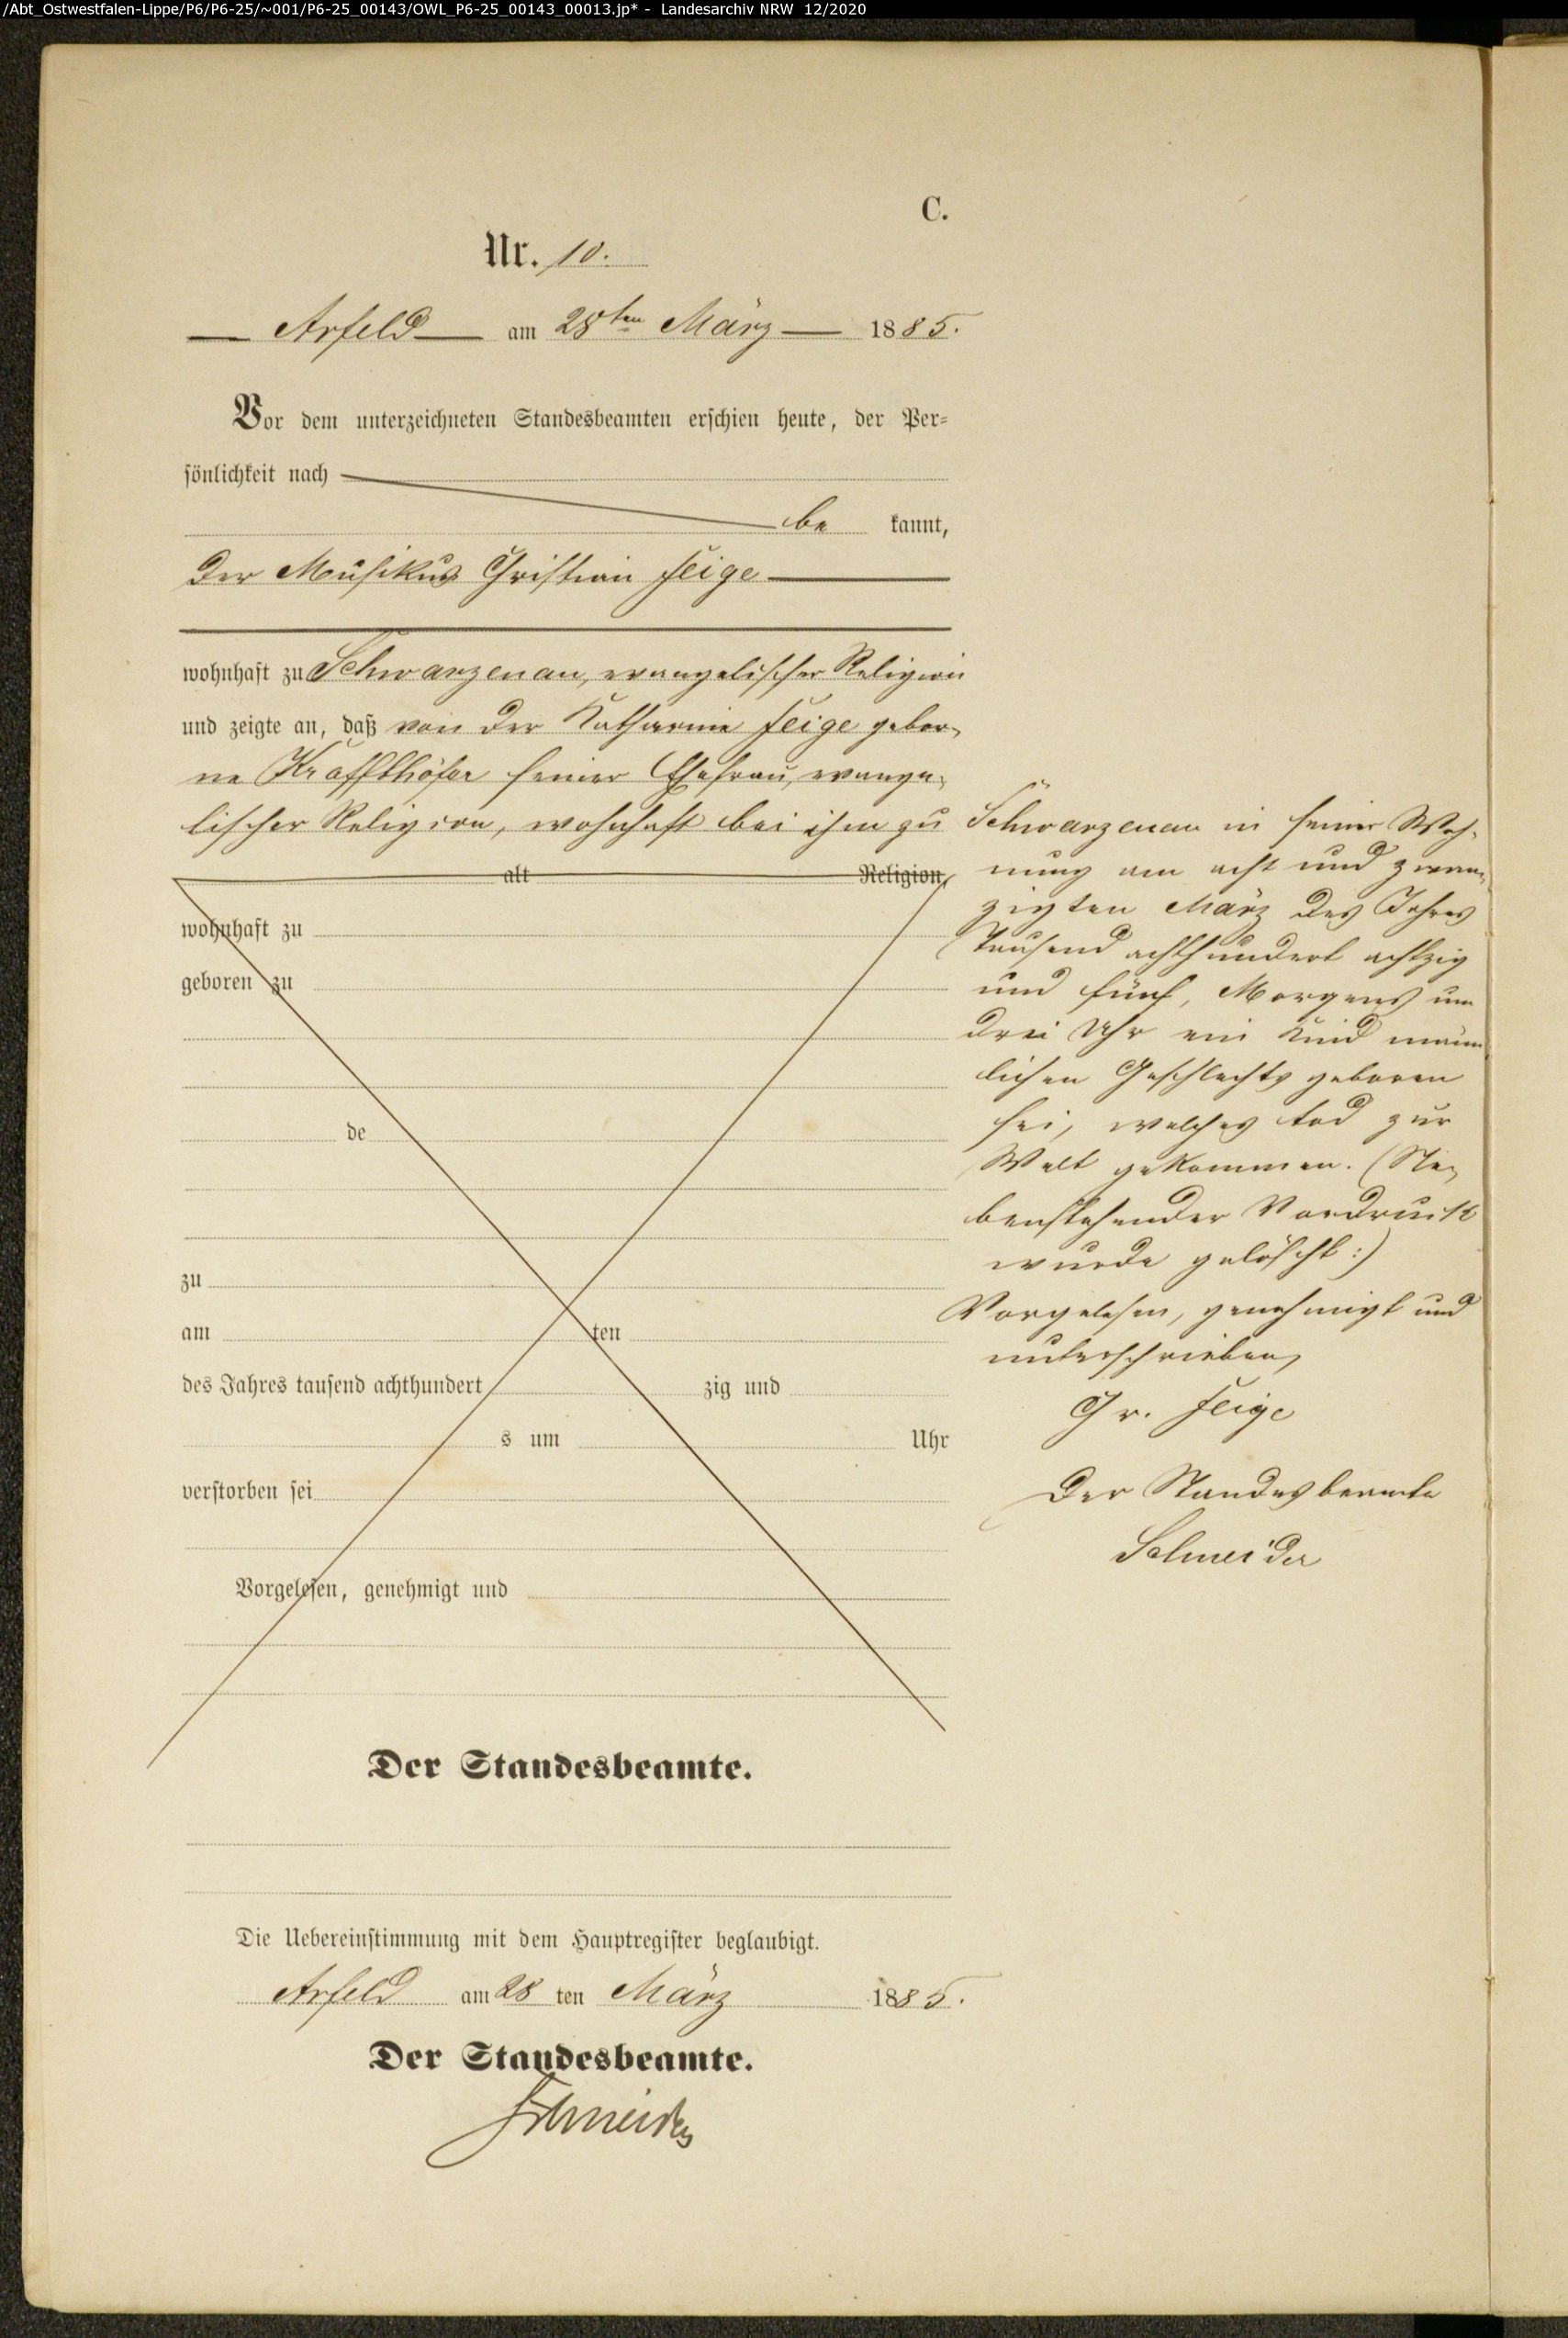 /Abt_Ostwestfalen-Lippe/P6/P6-25/~001/P6-25_00143/OWL_P6-25_00143_00013.jp* - Landesarchiv NRW 12/2020
C.
Nr. 10.
Arfeld am 28ten März 1885.
Vor dem unterzeichneten Standesbeamten erschien heute, der Per-
sönlichkeit nach
be kannt,
der Musikus Christian Feige
wohnhaft zu Schwarzenau, evangelischer Religion
und zeigte an, daß von der Katharine Feige gebor-
ne Kraffthöfer seiner Ehefrau, evange-
lischer Religion, wohnhaft bei ihm zu
alt Religion,
wohnhaft zu
geboren zu
de
zu
am ten
des Jahres tausend achthundert zig und
s um Uhr
verstorben sei
Vorgelesen, genehmigt und
Schwarzenau in seiner Woh-
nung am acht und zwan-
zigten März des Jahres
tausend achthundert achtzig
und fünf, Morgens um
drei Uhr ein Kind männ-
lichen Geschlechts geboren
sei, welches tod zur
Welt gekommen. (Ne-
benstehender Vordruck
wurde gelöscht:)
Vorgelesen, genehmigt und
unterschrieben,
Chr. Feige
Der Standesbeamte
Schneider
Der Standesbeamte.
Die Uebereinstimmung mit dem Hauptregister beglaubigt.
Arfeld am 28 ten März 1885.
Der Standesbeamte.
Schneider